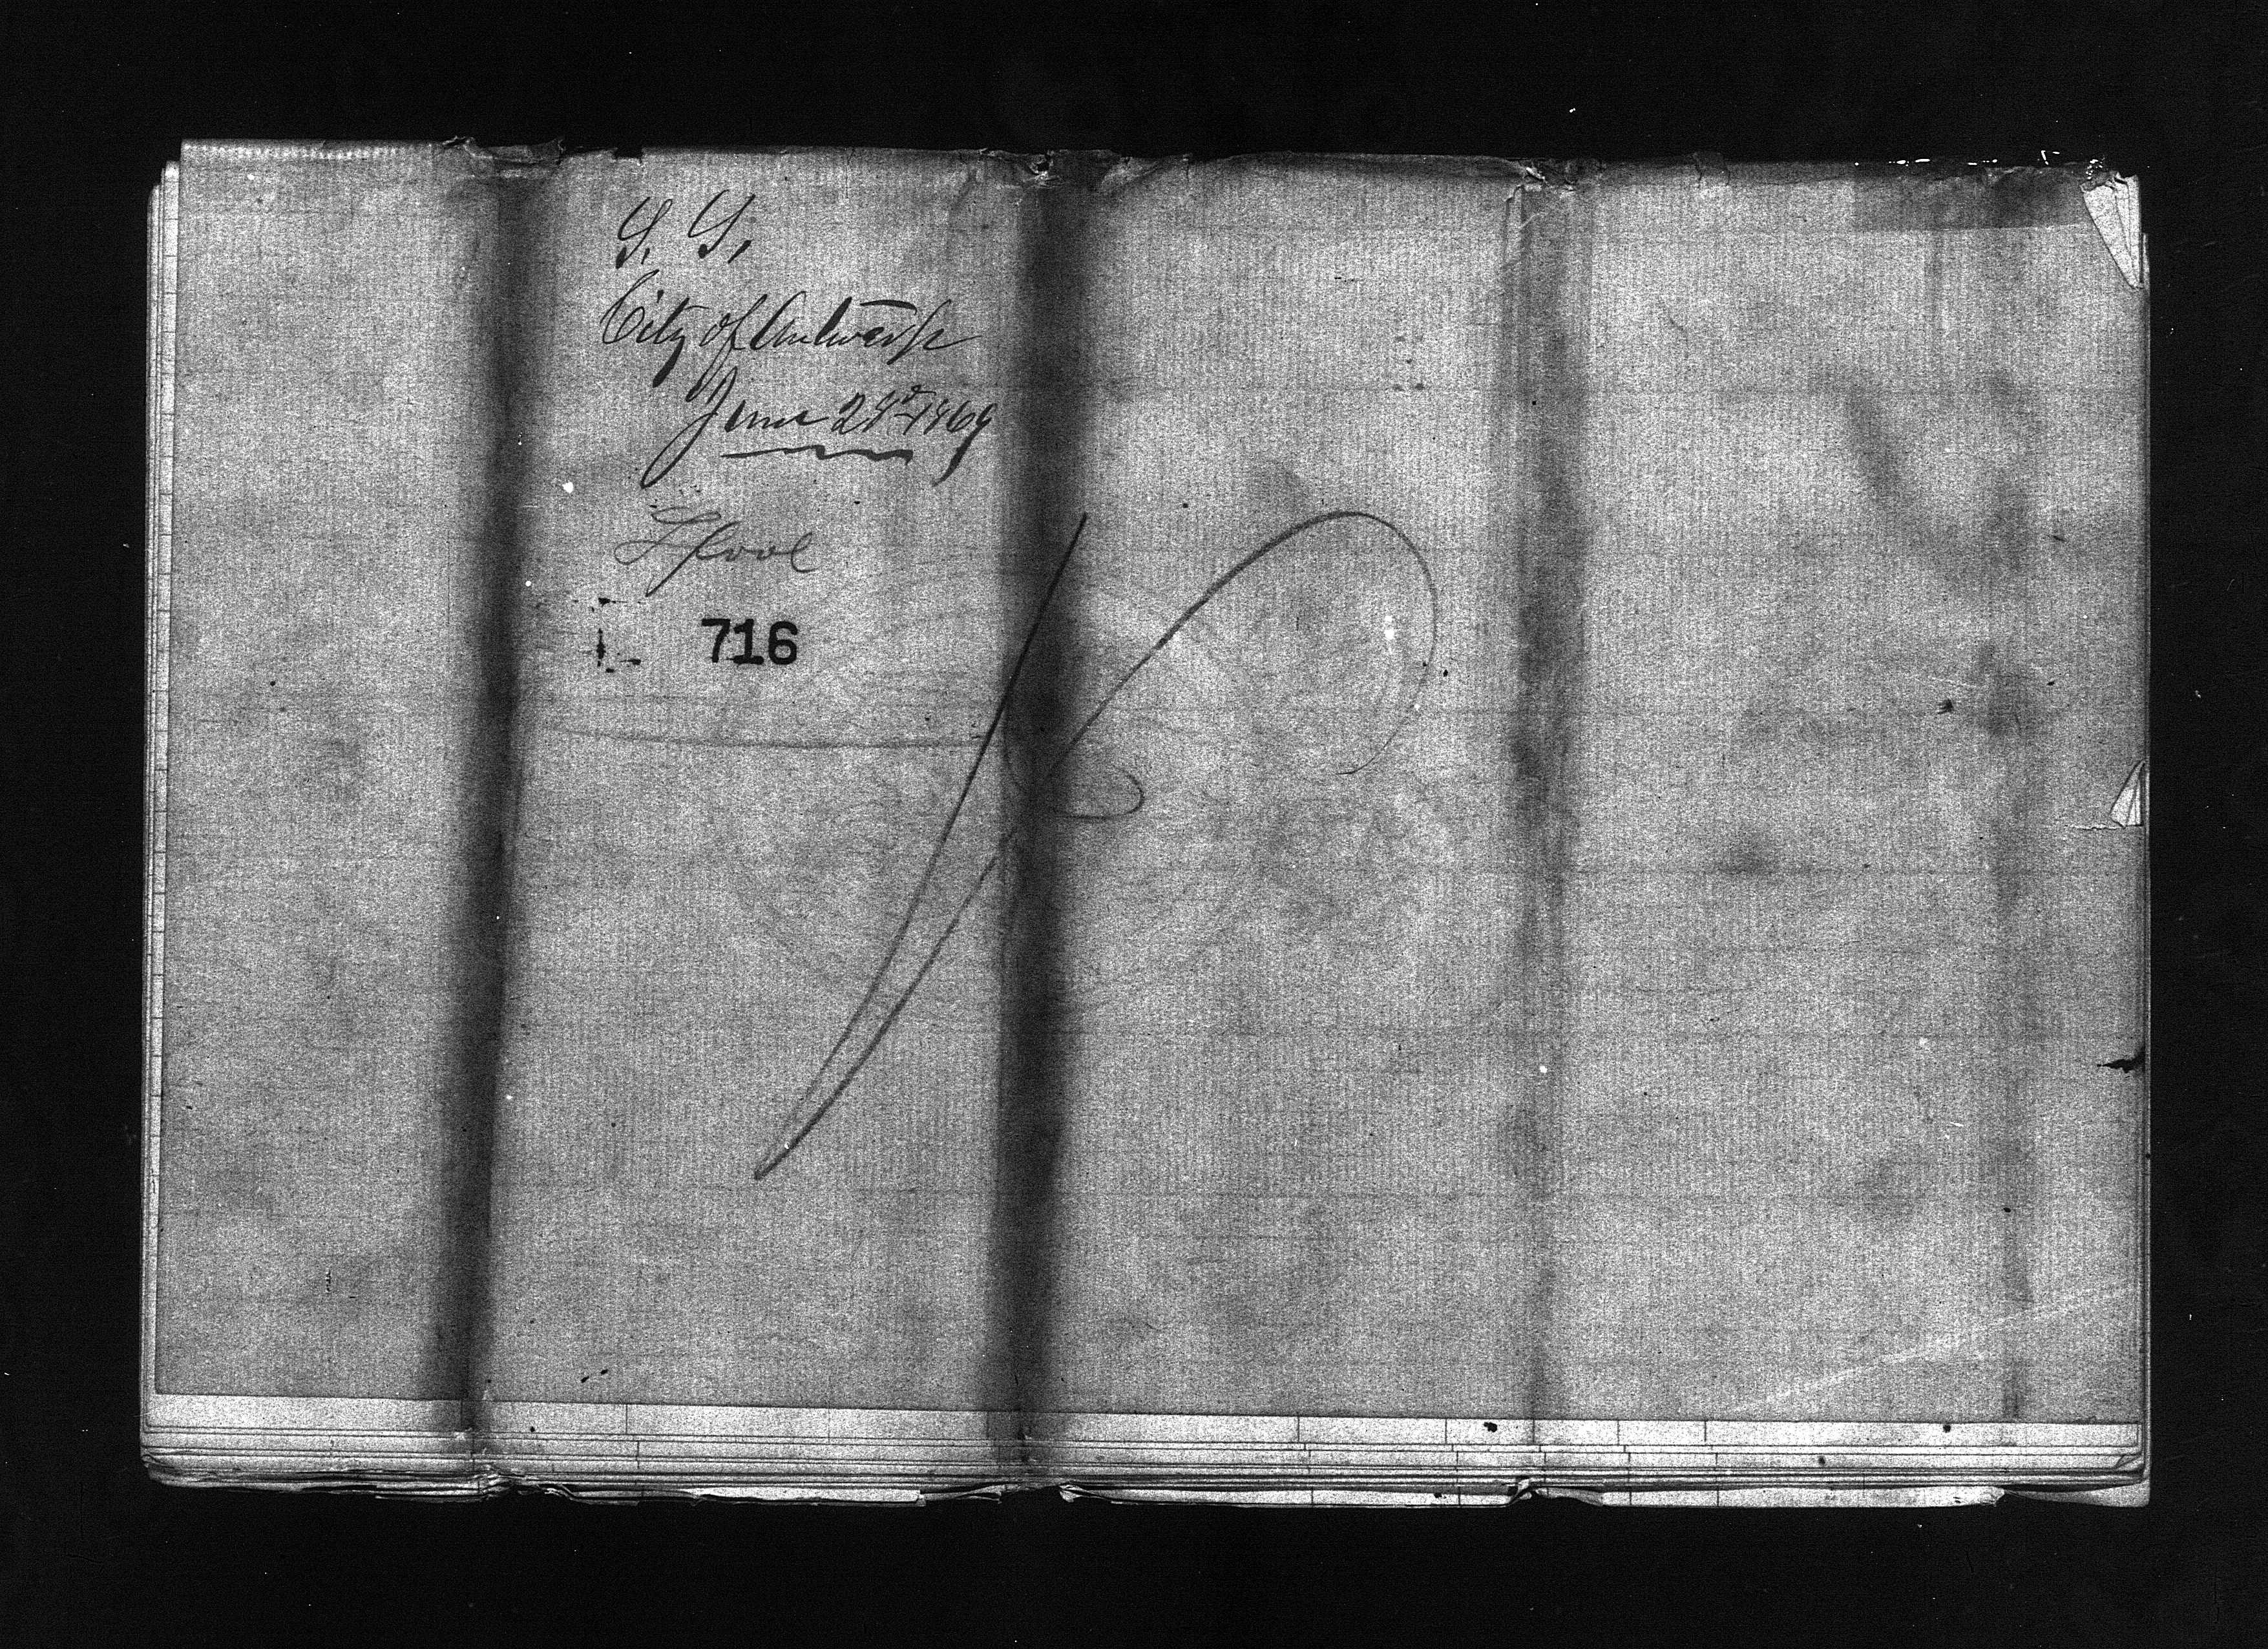 S. S.
City of Antwerp
June 28th 1869
L'pool
716